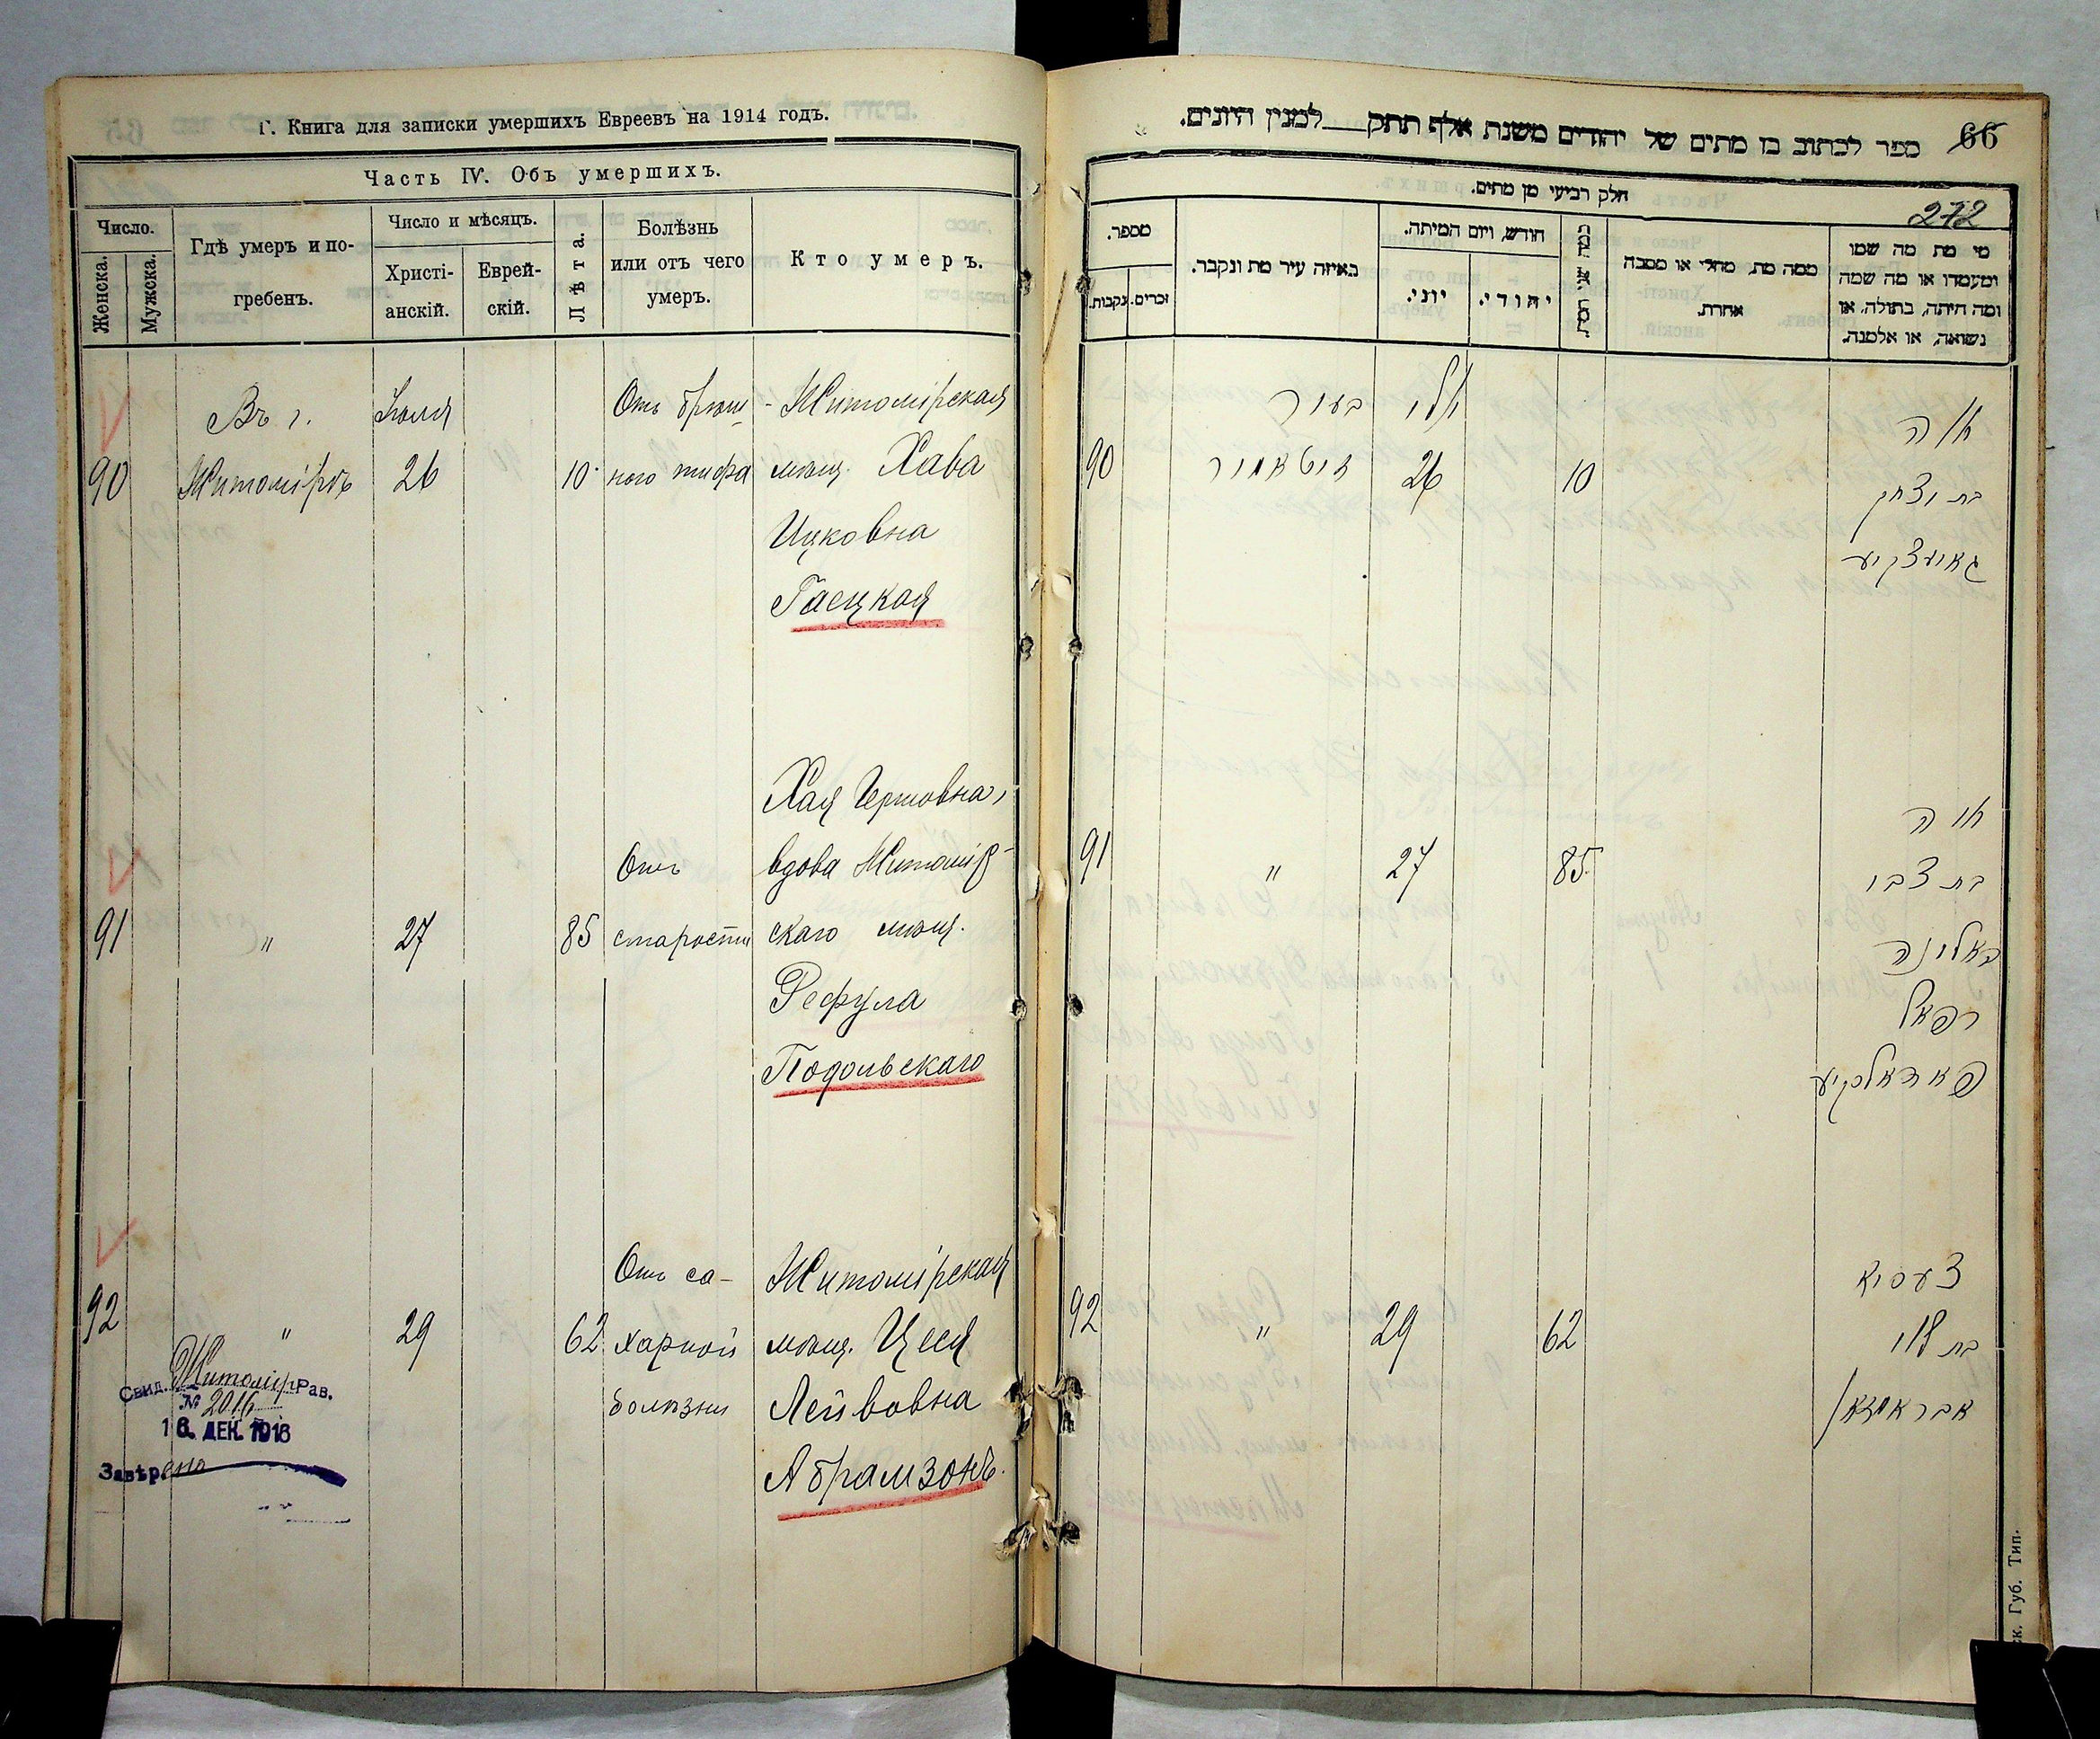 Г. Книга для записки умершихъ Евреевъ на 1914 годъ.
Часть IV. Объ умершихъ.
Число.
Женска.
Мужска.
Гдѣ умеръ и по-
гребенъ.
Число и мѣсяцъ.
Христі-
анскій.
Еврей-
скій.
Лѣта.
Болѣзнь
или отъ чего
умеръ.
Кто умеръ.
Въ г. Іюля Отъ брюш- Житомірская
90 Житомірѣ 26 10 ного тифа мѣщ. Хава
Ицковна
Гаецкая
Хая Гершовна,
Отъ вдова Житомір-
91 " 27 85 старости скаго мѣщ.
Рефула
Подольскаго
Отъ са- Житомірская
92 " 29 62 харной мѣщ. Цеся
болѣзни Лейбовна
Абрамзонъ.
Свид. Житомір. Рав.
№ 2016
16. ДЕК. 1916
Завѣрено
ספר לכתוב בו מתים של יהודים משנת אלף תתק למנין היונים.
66
חלק רביעי מן מתים.
272
מספר.
נקבות.
זכרים.
באיזה עיר מת ונקבר.
חודש, ויום המיתה.
יוני.
יהודי.
ממה מת, מחלי או מסבה
אחרת.
מי מת מה שמו
ומעמדו או מה שמה
ומה היתה, בתולה, או
נשואה, או אלמנה.
בעיר יולי חוה
90 זיטאמיר 26 10 בת יצחק
גאיעצקיע
חיה
91 " 27 85 בת צבי
האלמנה
רפאל
פאדאלסקיע
צעסיא
92 " 29 62 בת לוי
אבראמזאן
ск. Губ. Тип.